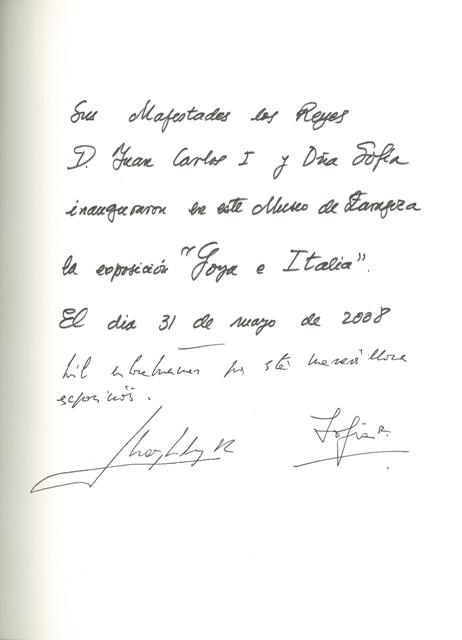 Sus Majestades los Reyes
D. Juan Carlos I y Dña Sofía
inauguraron en este Museo de Zaragoza
la exposición "Goya e Italia".
El dia 31 de mayo de 2008
Mil por esta maravillosa
exposición.
Sofía R.